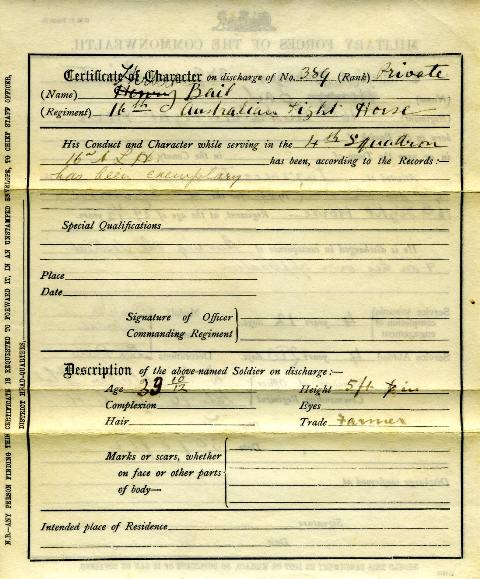 Certificate of Character on discharge of No. 389 (Rank) Private
(Name) Henry Bail
(Regiment) 16th Australian Light Horse
His Conduct and Character while serving in the 4th Squadron
16th A L H has been, according to the Records:—
has been exemplary
Special Qualifications
Place
Date
Signature of Officer
Commanding Regiment
Description of the above-named Soldier on discharge:—
Age 39 10/12 Height 5ft 7in
Complexion Eyes
Hair Trade Farmer
Marks or scars, whether
on face or other parts
of body—
Intended place of Residence
N.B.—ANY PERSON FINDING THIS CERTIFICATE IS REQUESTED TO FORWARD IT, IN AN UNSTAMPED ENVELOPE, TO CHIEF STAFF OFFICER,
DISTRICT HEAD-QUARTERS.